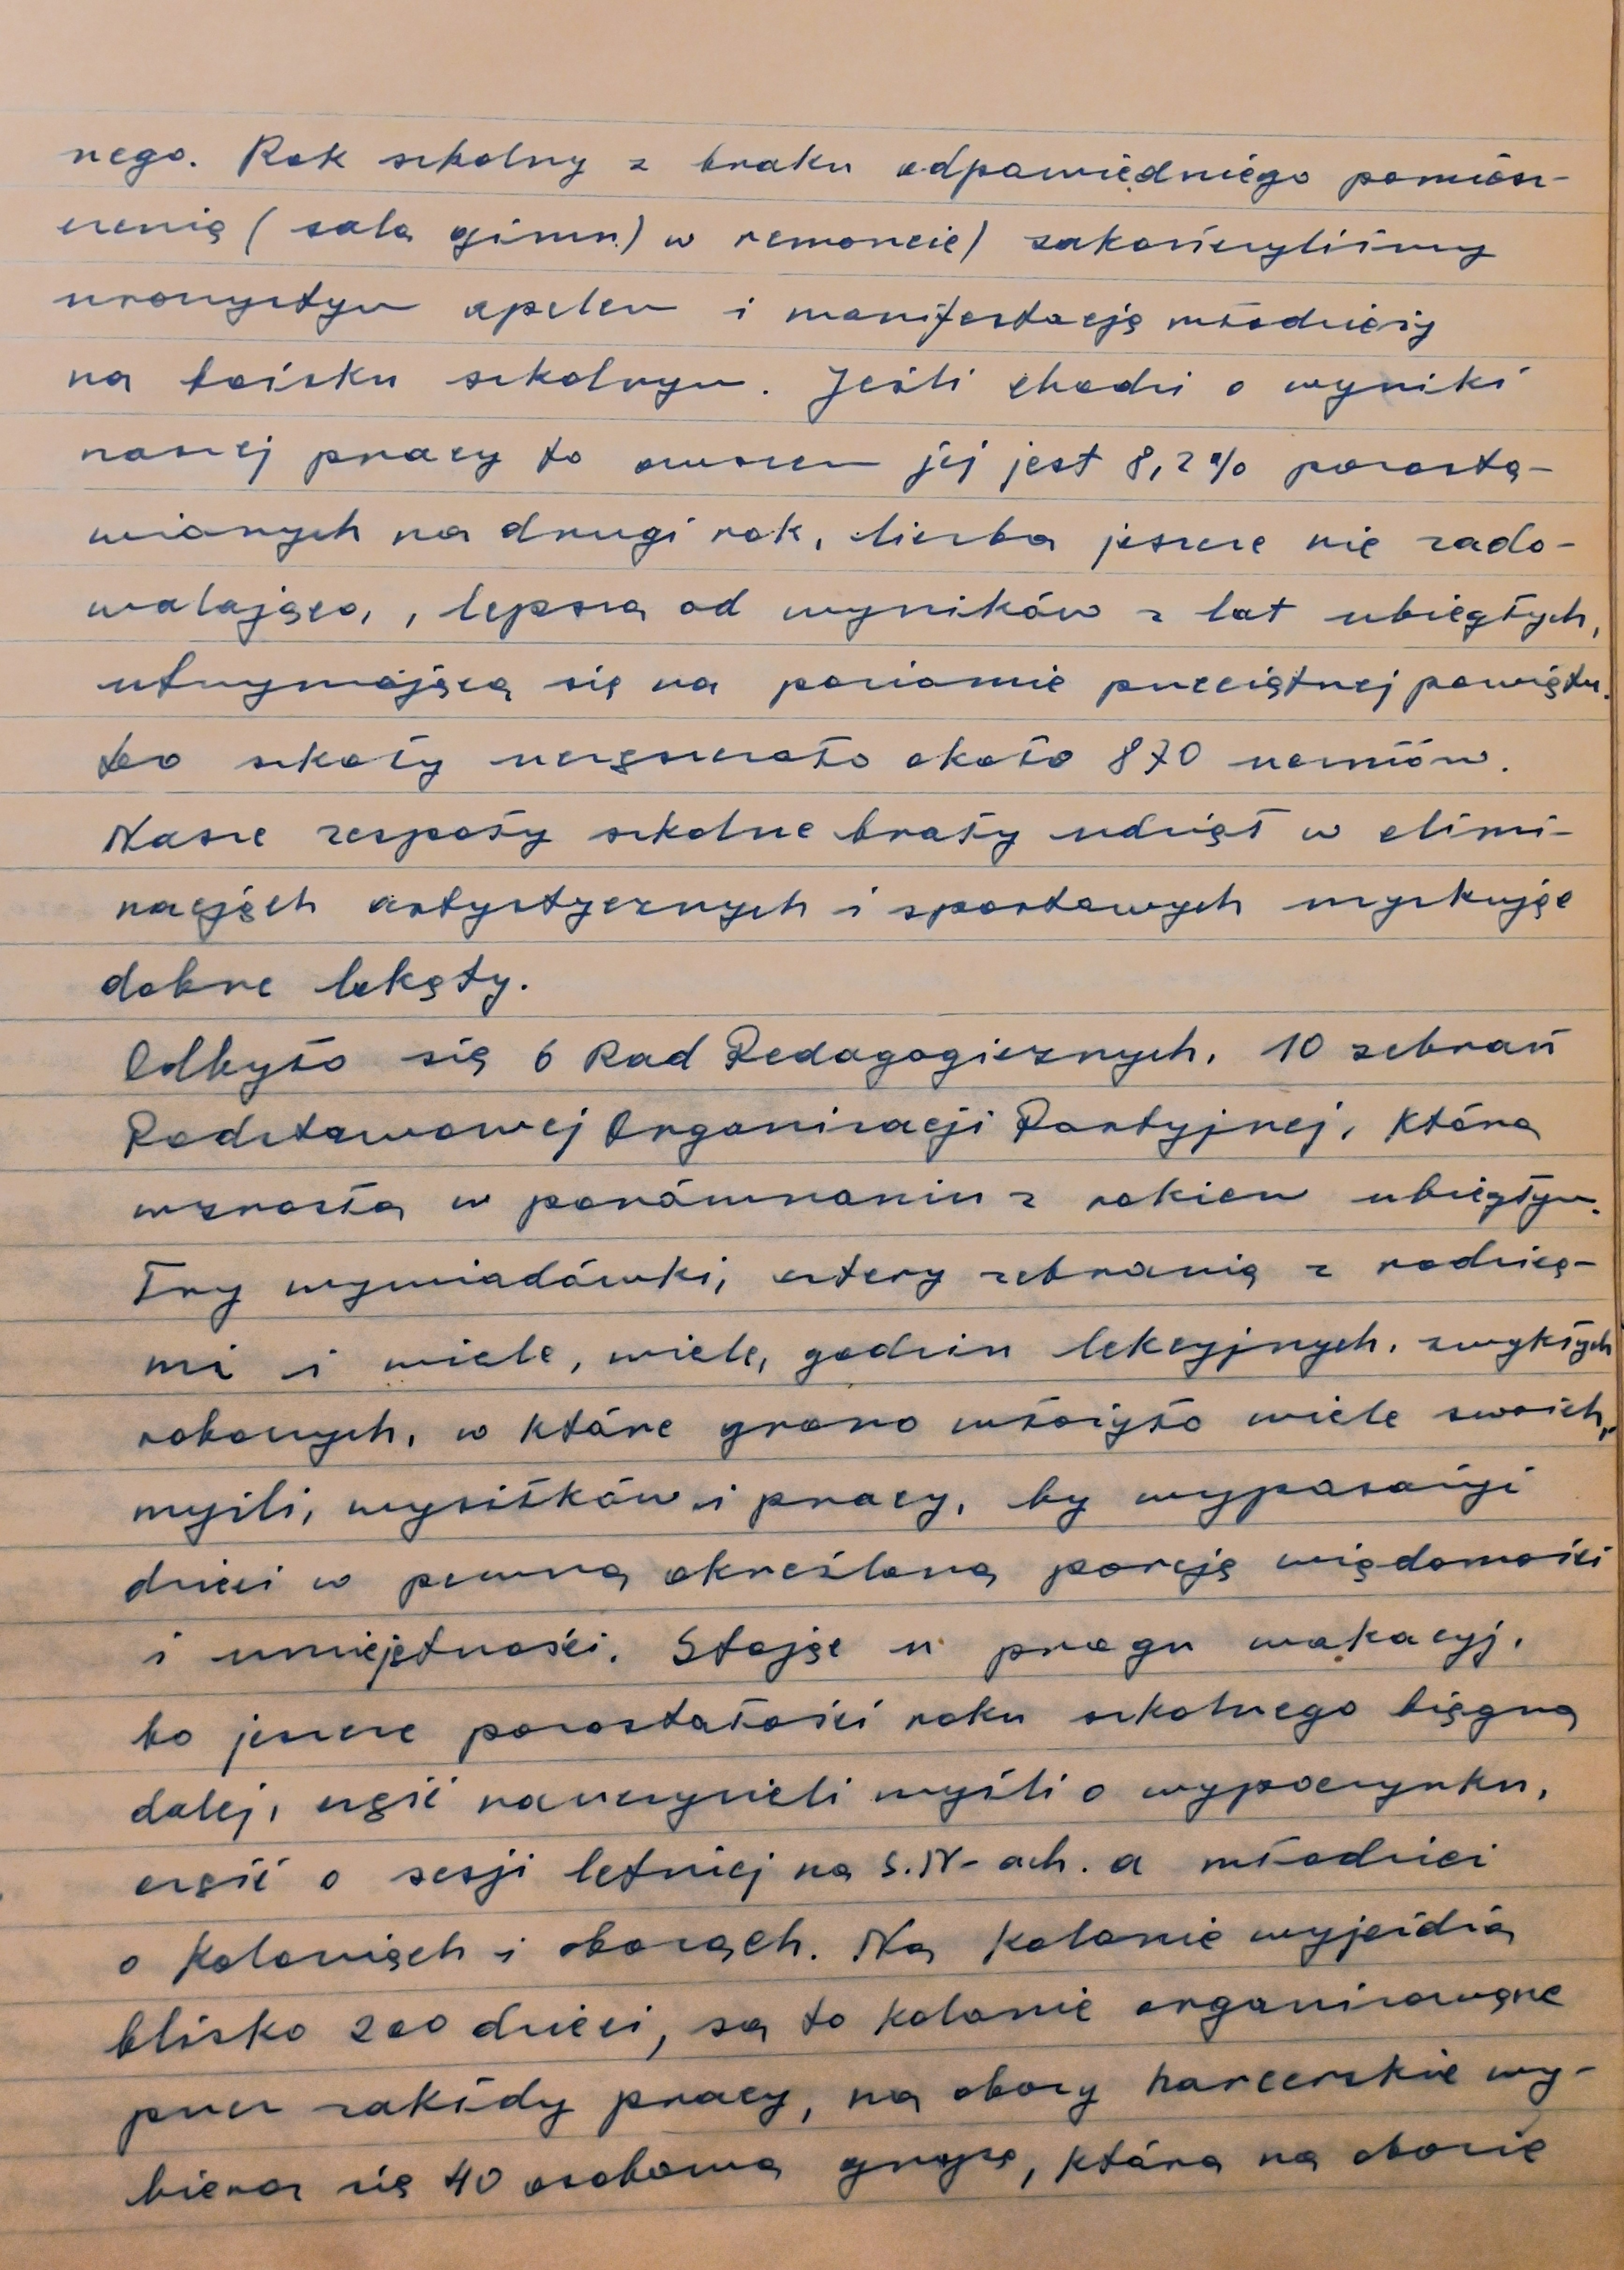 nego. Rok szkolny z braku odpowiedniego pomiesz-
czenia (sala gimn.) w remoncie) zakończyliśmy
uroczystym apelem i manifestacją młodzieży
na boisku szkolnym. Jeśli chodzi o wyniki
naszej pracy to owocem jej jest 8,2% pozosta-
wionych na drugi rok, liczba jeszcze nie zado-
walająca, , lepsza od wyników z lat ubiegłych,
utrzymająca się na poziomie przeciętnej powiatu.
Do szkoły uczęszczało około 870 uczniów.
Nasze zespoły szkolne brały udział w elimi-
nacjach artystycznych i sportowych uzyskując
dobre lokaty.
Odbyło się 6 Rad Pedagogicznych, 10 zebrań
Podstawowej Organizacji Partyjnej, która
wzrosła w porównaniu z rokiem ubiegłym.
Trzy wywiadówki, cztery zebrania z rodzica-
mi i wiele, wiele, godzin lekcyjnych, zwykłych
roboczych, w które grono włożyło wiele swoich,
myśli, wysiłków i pracy, by wyposażyć
dzieci w pewną określoną porcję wiadomości
i umiejętności. Stojąc u progu wakacyj,
bo jeszcze pozostałości roku szkolnego biegną
dalej, część nauczycieli myśli o wypoczynku,
część o sesji letniej na S.N-ach. a młodzież
o koloniach i obozach. Na kolonie wyjeżdża
blisko 200 dzieci, są to kolonie organizowane
przez zakłdy pracy, na obozy harcerskie wy-
biera się 40 osobowa grupa, która na obozie